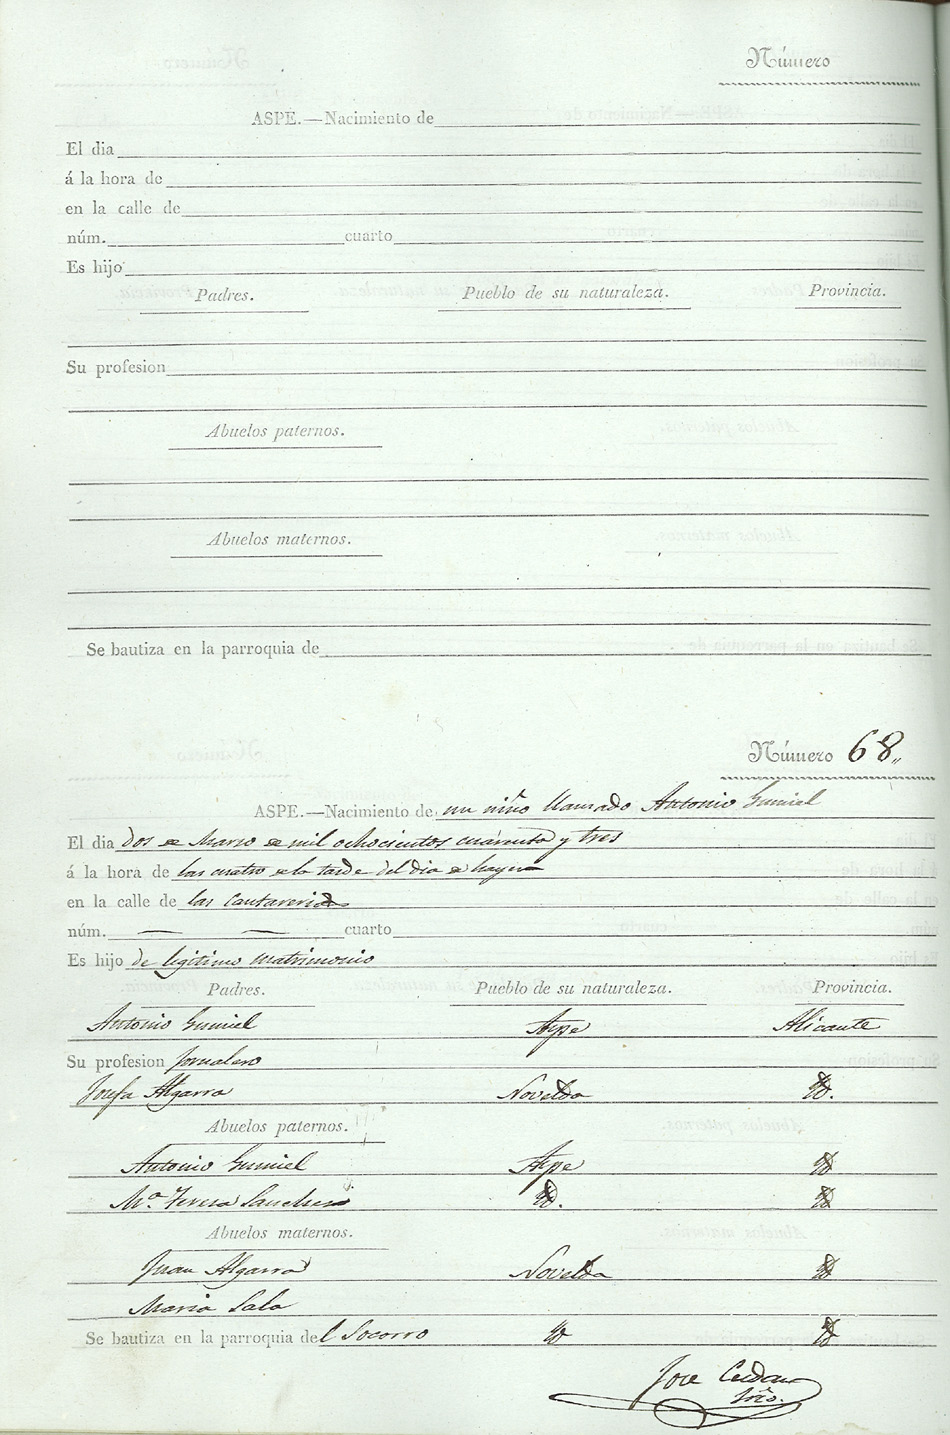 Número
ASPE.—Nacimiento de
El dia
á la hora de
en la calle de
núm. cuarto
Es hijo
Padres. Pueblo de su naturaleza. Provincia.
Su profesion
Abuelos paternos.
Abuelos maternos.
Se bautiza en la parroquia de
Número 68„
ASPE.—Nacimiento de un niño llamado Antonio Gumiel
El dia dos de Marzo de mil ochocientos cuarenta y tres
á la hora de las cuatro de la tarde del dia de hayer
en la calle de las Cantarerias
núm. — — cuarto
Es hijo de legitimo matrimonio
Padres. Pueblo de su naturaleza. Provincia.
Antonio Gumiel Aspe Alicante
Su profesion Jornalero
Josefa Algarra Novelda Yd.
Abuelos paternos.
Antonio Gumiel Aspe Yd
Mª. Teresa Sanchez Yd. Yd
Abuelos maternos.
Juan Algarra Novelda Yd
Maria Sala
Se bautiza en la parroquia del Socorro Yd Yd
Jose
Srio.